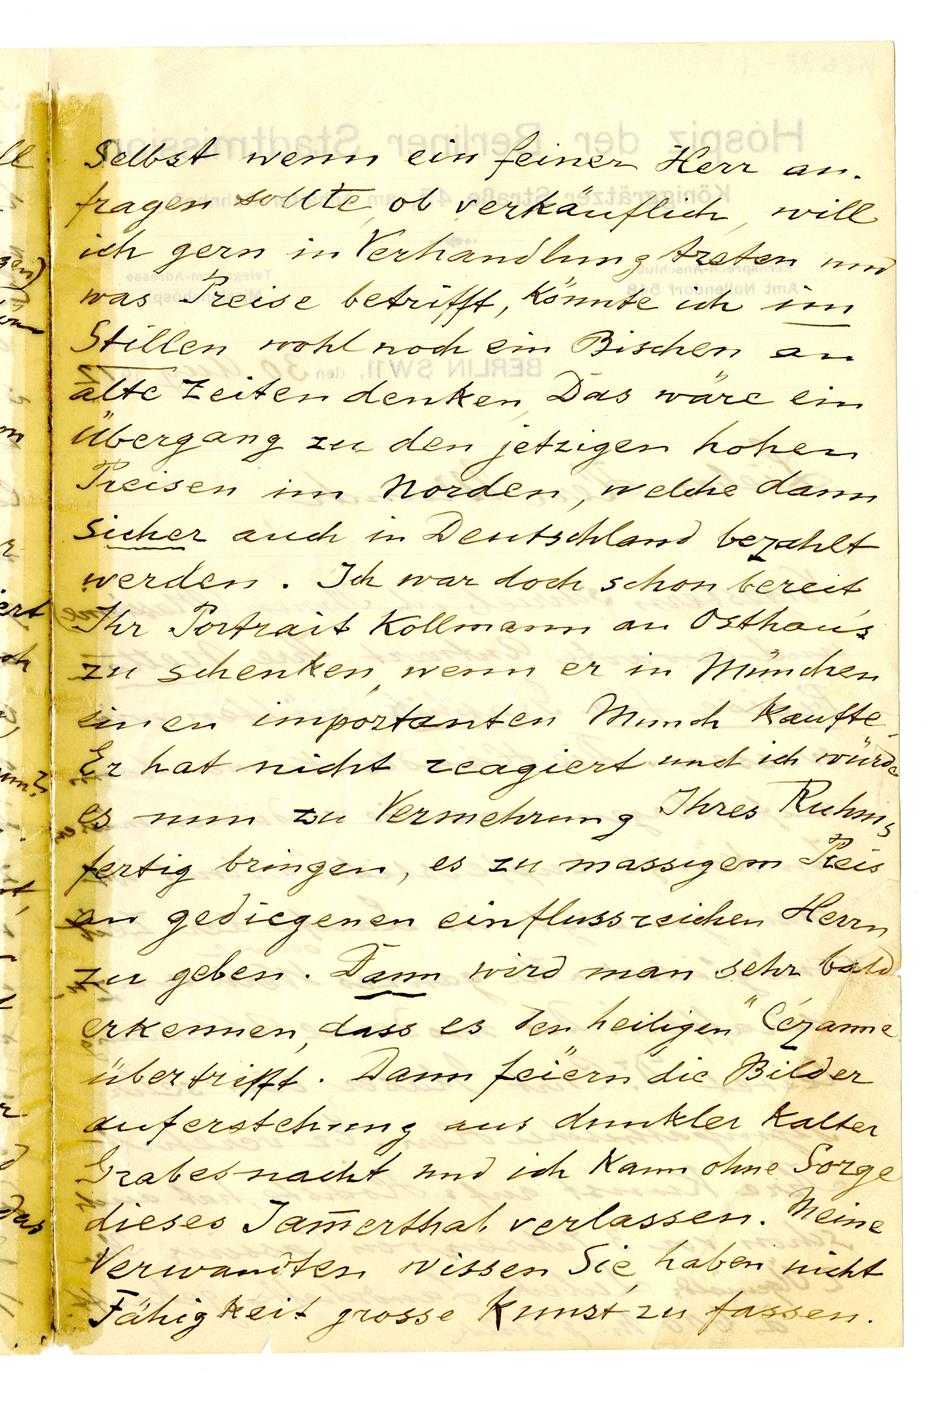 Selbst wenn ein feiner Herr an-
fragen sollte, ob verkäuflich, will
ich gern in Verhandlung treten und
was Preise betrifft, könnte ich im
Stillen wohl noch ein Bischen an
alte Zeiten denken. Das wäre ein
Übergang zu den jetzigen hohen
Preisen im Norden, welche dann
sicher auch in Deutschland bezahlt
werden. Ich war doch schon bereit
Ihr Portrait Kollmann an Osthaus
zu schenken, wenn er in München
einen importanten Munch kaufte.
Er hat nicht reagiert und ich würde
es nun zu Vermehrung Ihres Ruhms
fertig bringen, es zu massigem Preis
an gediegenen einflussreichen Herrn
zu geben. Dann wird man sehr bald
erkennen, dass es den heiligen" Cézanne
übertrifft. Dann feiern die Bilder
auferstehung aus dunkler kalter
Grabesnacht und ich kann ohne Sorge
dieses Jam̄erthal verlassen. Meine
Verwandten wissen Sie, haben nicht
Fähigkeit grosse Kunst zu fassen.
Hospiz der Berliner Stadtmission
BERLIN SW 11, den